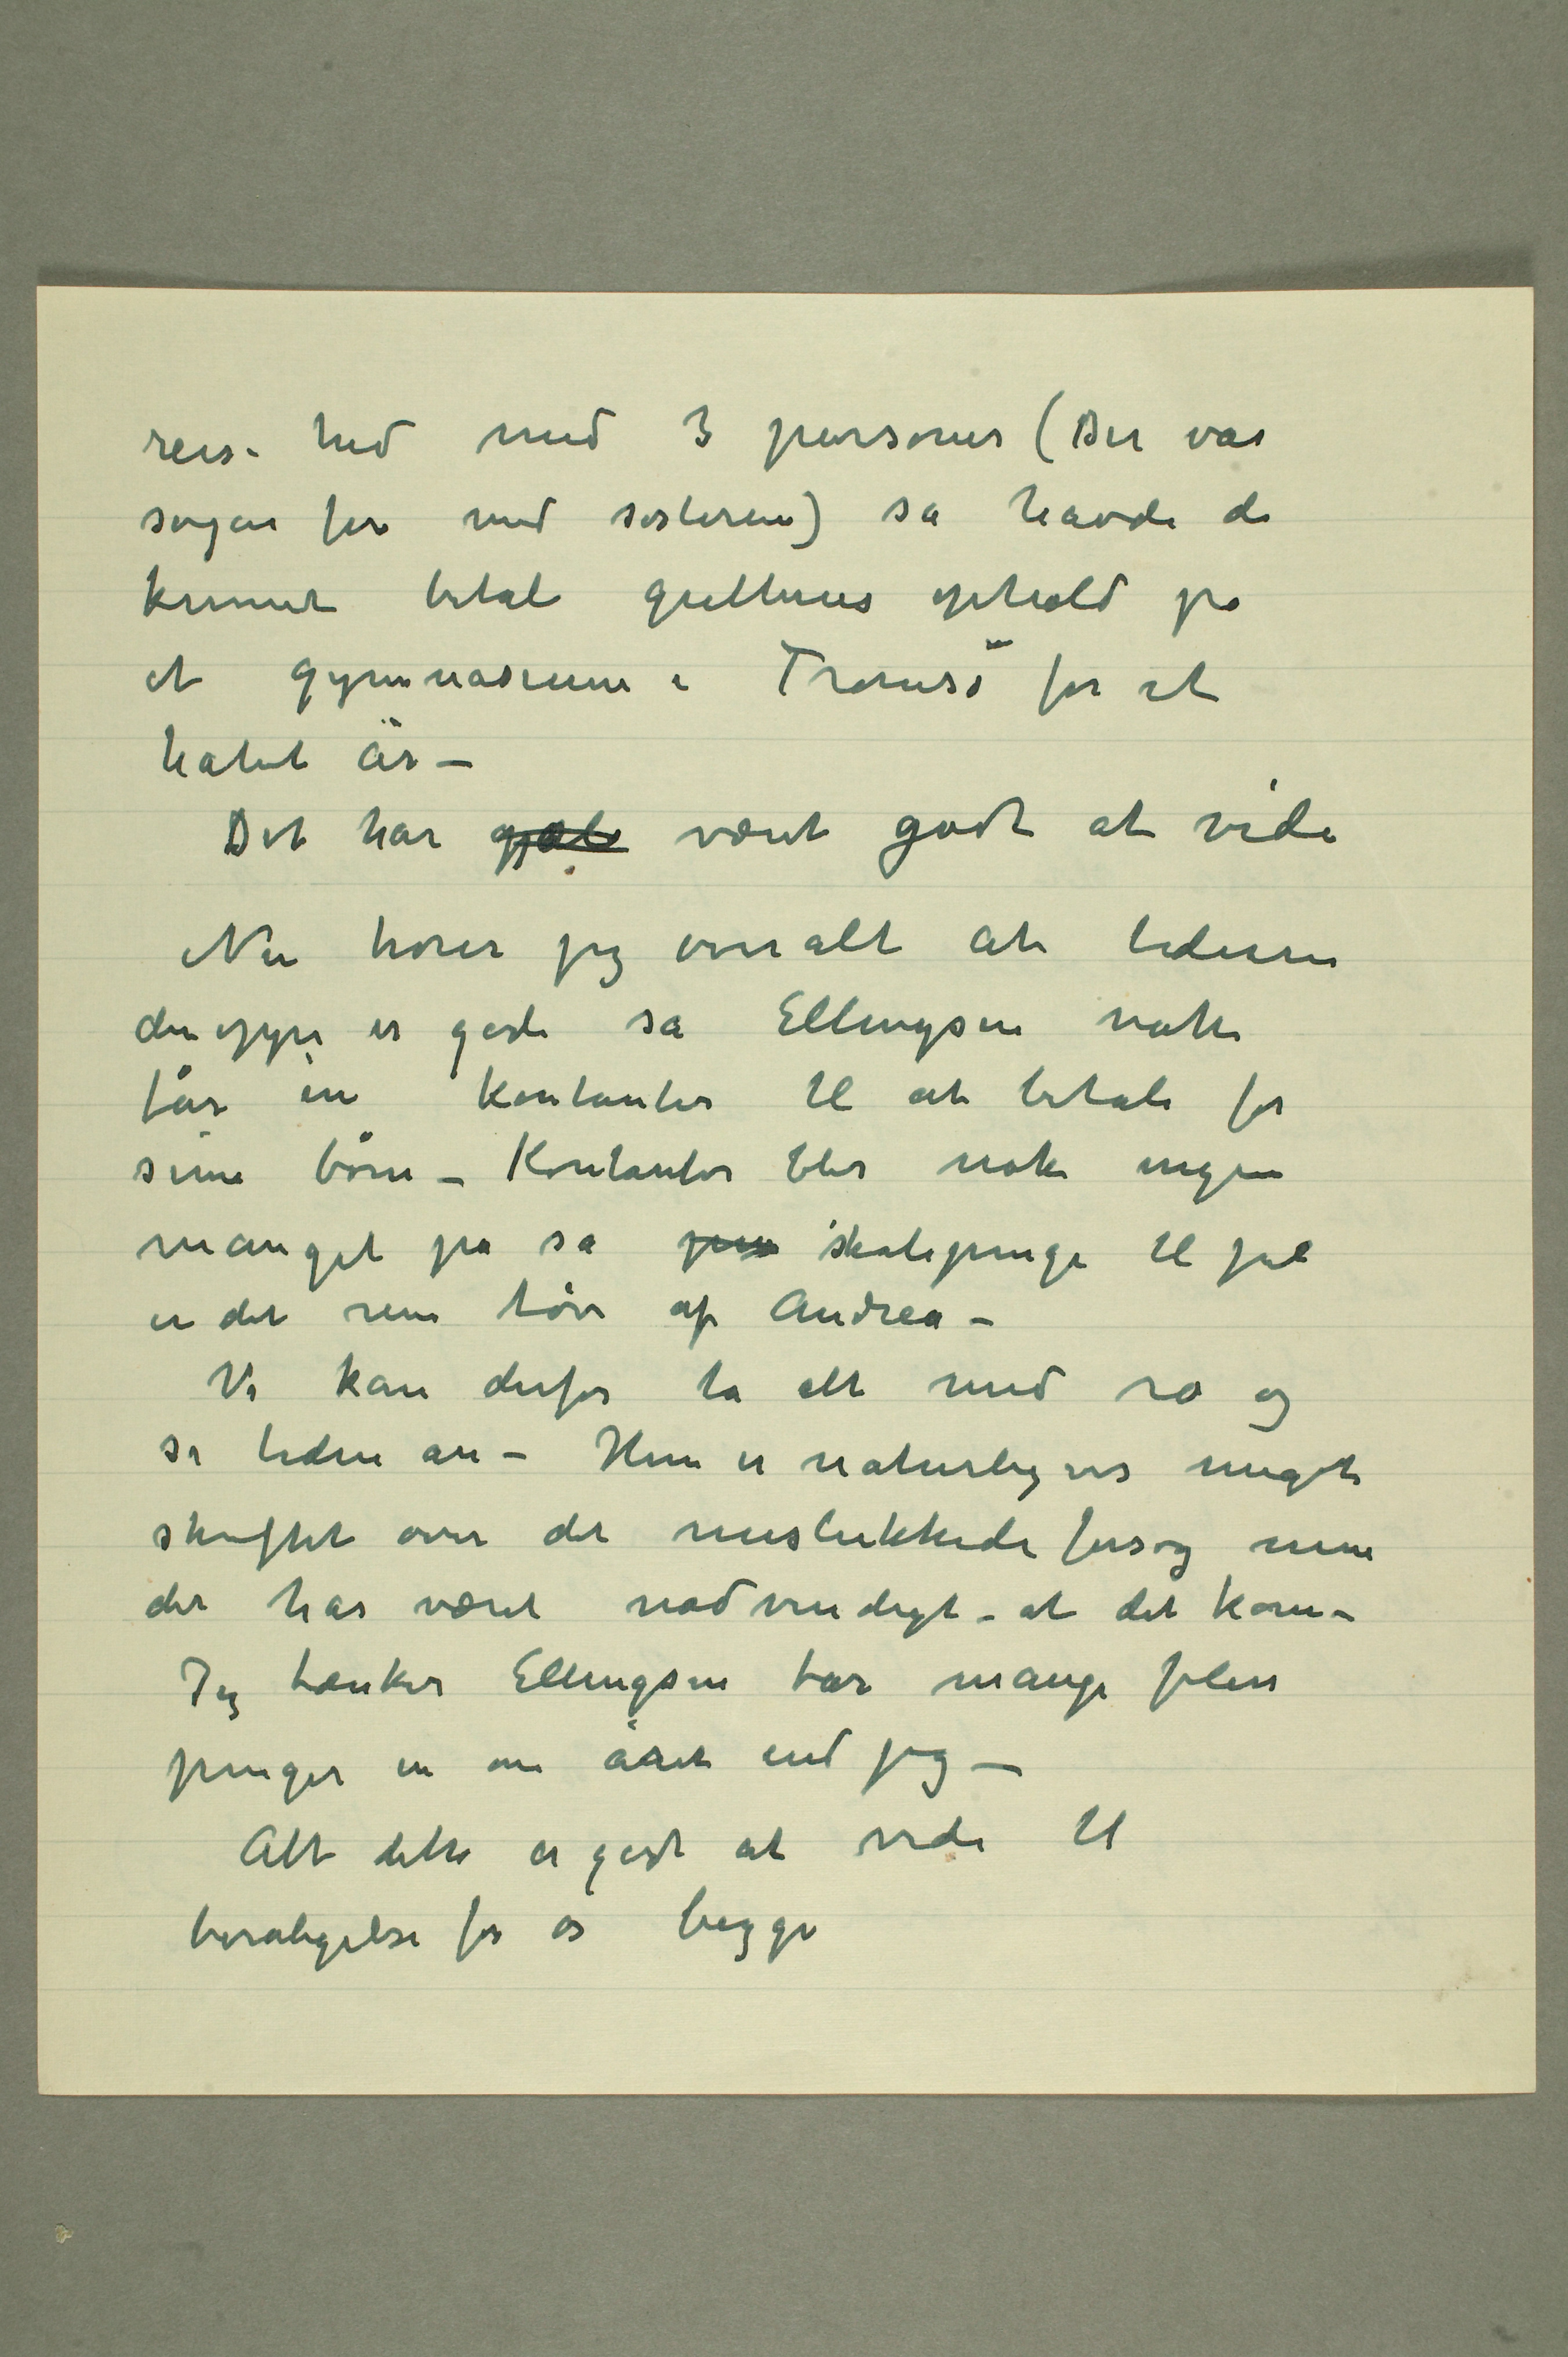 reise hid med 3 personer (Der var
sogar før med søsteren) så havde de
kunnet betale guttens ophold på
et gymnasium i Tromsö for et
halvt år –
Det har været godt at vide
Nu hører jeg overalt at tiderne
deroppe er gode så Ellingsen nok
får ind kontanter til at betale for
sine børn – Kontanter blir nok ingen
mangel på så skatepenge til jul
er det rene tøv af Andrea –
Vi kan derfor ta alt med ro og
se tiden an – Hun er naturligvis meget
skuffet over det mislukkede forsøg men
det har været nødvendigt – at det kom –
Jeg tænker Ellingsen tar mange flere
penger in om året end jeg –
Alt dette er godt at vide til
beroligelse for os begge